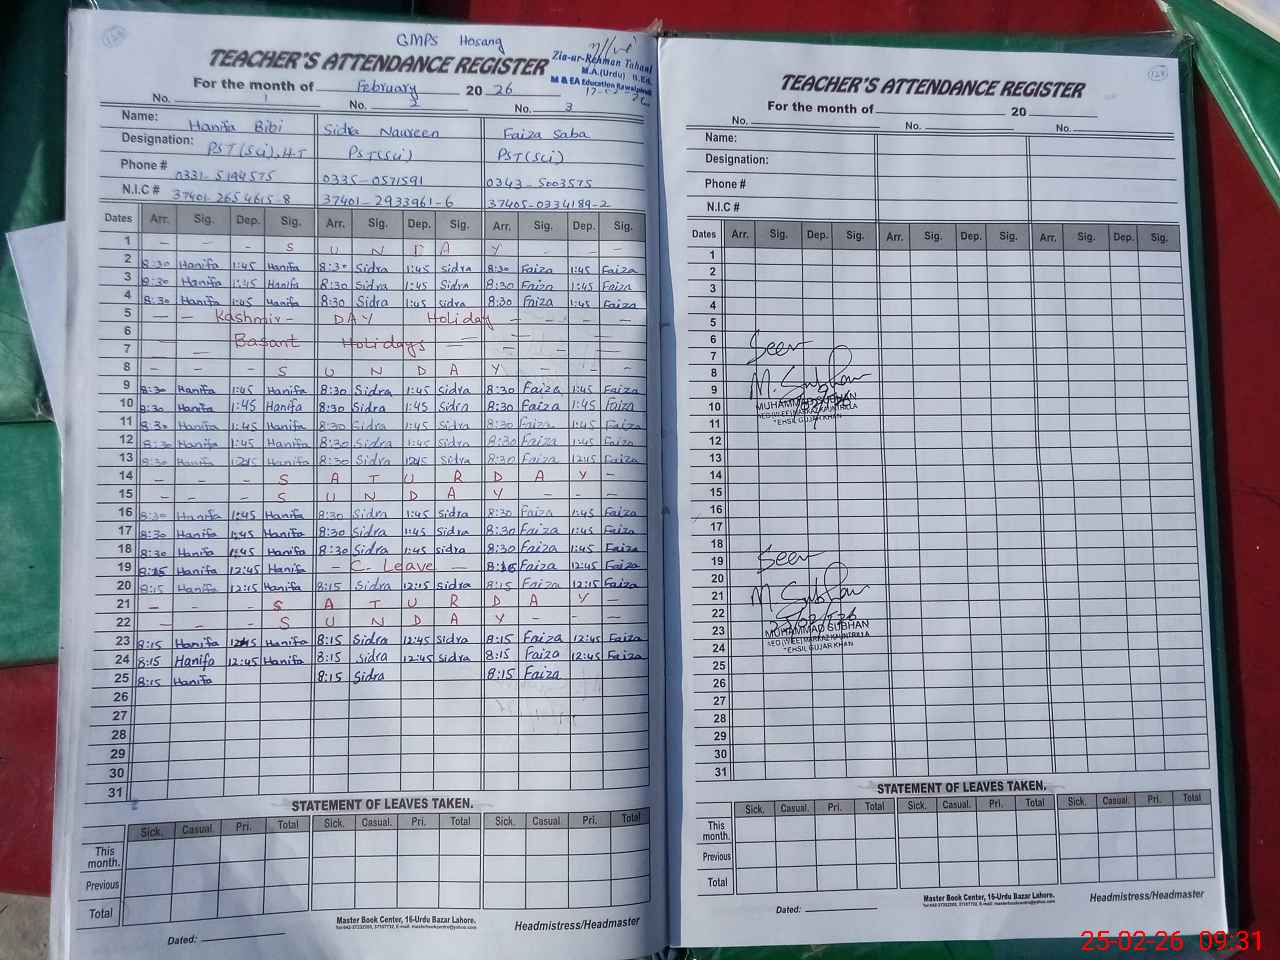 128
GMPS Hosang
TEACHER'S ATTENDANCE REGISTER
Zia-ur-Rehman Tahani
M.A.(Urdu) B.Ed.
M & EA Education Rawalpindi
For the month of February 20 26
No. 1 No. 2 No. 3
Name: Hanifa Bibi Sidra Naureen Faiza Saba
Designation: PST(Sci), H.T PST(Sci) PST(Sci)
Phone # 0331-5194575 0335-0571591 0343-5003575
N.I.C # 37401-2654615-8 37401-2933961-6 37405-0334189-2
Dates Arr. Sig. Dep. Sig. Arr. Sig. Dep. Sig. Arr. Sig. Dep. Sig.
1 - - - S U N D A Y - - -
2 8:30 Hanifa 1:45 Hanifa 8:30 Sidra 1:45 Sidra 8:30 Faiza 1:45 Faiza
3 8:30 Hanifa 1:45 Hanifa 8:30 Sidra 1:45 Sidra 8:30 Faiza 1:45 Faiza
4 8:30 Hanifa 1:45 Hanifa 8:30 Sidra 1:45 Sidra 8:30 Faiza 1:45 Faiza
5 - - Kashmir - DAY Holiday - - - -
6 Basant Holidays
7
8 - - - S U N D A Y - - -
9 8:30 Hanifa 1:45 Hanifa 8:30 Sidra 1:45 Sidra 8:30 Faiza 1:45 Faiza
10 8:30 Hanifa 1:45 Hanifa 8:30 Sidra 1:45 Sidra 8:30 Faiza 1:45 Faiza
11 8:30 Hanifa 1:45 Hanifa 8:30 Sidra 1:45 Sidra 8:30 Faiza 1:45 Faiza
12 8:30 Hanifa 1:45 Hanifa 8:30 Sidra 1:45 Sidra 8:30 Faiza 1:45 Faiza
13 8:30 Hanifa 12:15 Hanifa 8:30 Sidra 12:15 Sidra 8:30 Faiza 12:15 Faiza
14 - - - S A T U R D A Y -
15 - - - S U N D A Y - - -
16 8:30 Hanifa 1:45 Hanifa 8:30 Sidra 1:45 Sidra 8:30 Faiza 1:45 Faiza
17 8:30 Hanifa 1:45 Hanifa 8:30 Sidra 1:45 Sidra 8:30 Faiza 1:45 Faiza
18 8:30 Hanifa 1:45 Hanifa 8:30 Sidra 1:45 Sidra 8:30 Faiza 1:45 Faiza
19 8:15 Hanifa 12:45 Hanifa - C. Leave - 8:15 Faiza 12:45 Faiza
20 8:15 Hanifa 12:15 Hanifa 8:15 Sidra 12:15 Sidra 8:15 Faiza 12:15 Faiza
21 - - - S A T U R D A Y -
22 - - - S U N D A Y - - -
23 8:15 Hanifa 12:45 Hanifa 8:15 Sidra 12:45 Sidra 8:15 Faiza 12:45 Faiza
24 8:15 Hanifa 12:45 Hanifa 8:15 Sidra 12:45 Sidra 8:15 Faiza 12:45 Faiza
25 8:15 Hanifa 8:15 Sidra 8:15 Faiza
26
27
28
29
30
31
STATEMENT OF LEAVES TAKEN.
Sick. Casual. Pri. Total Sick. Casual. Pri. Total Sick. Casual. Pri. Total
This month.
Previous
Total
Master Book Center, 16-Urdu Bazar Lahore.
Headmistress/Headmaster
Dated:
129
TEACHER'S ATTENDANCE REGISTER
For the month of 20
No. No. No.
Name:
Designation:
Phone #
N.I.C #
Dates Arr. Sig. Dep. Sig. Arr. Sig. Dep. Sig. Arr. Sig. Dep. Sig.
1
2
3
4
5
6
7 Seen
8
9 M. Subhan
10 MUHAMMAD SUBHAN
11 TEHSIL GUJAR KHAN
12
13
14
15
16
17
18
19 Seen
20
21 M Subhan
22 25/02/026
23 MUHAMMAD SUBHAN
AEO (WEE) MARKAZ KAUNTRILLA
24 TEHSIL GUJAR KHAN
25
26
27
28
29
30
31
STATEMENT OF LEAVES TAKEN.
Sick. Casual. Pri. Total Sick. Casual. Pri. Total Sick. Casual. Pri. Total
This month.
Previous
Total
Master Book Center, 16-Urdu Bazar Lahore.
Headmistress/Headmaster
Dated:
25-02-26 09:31